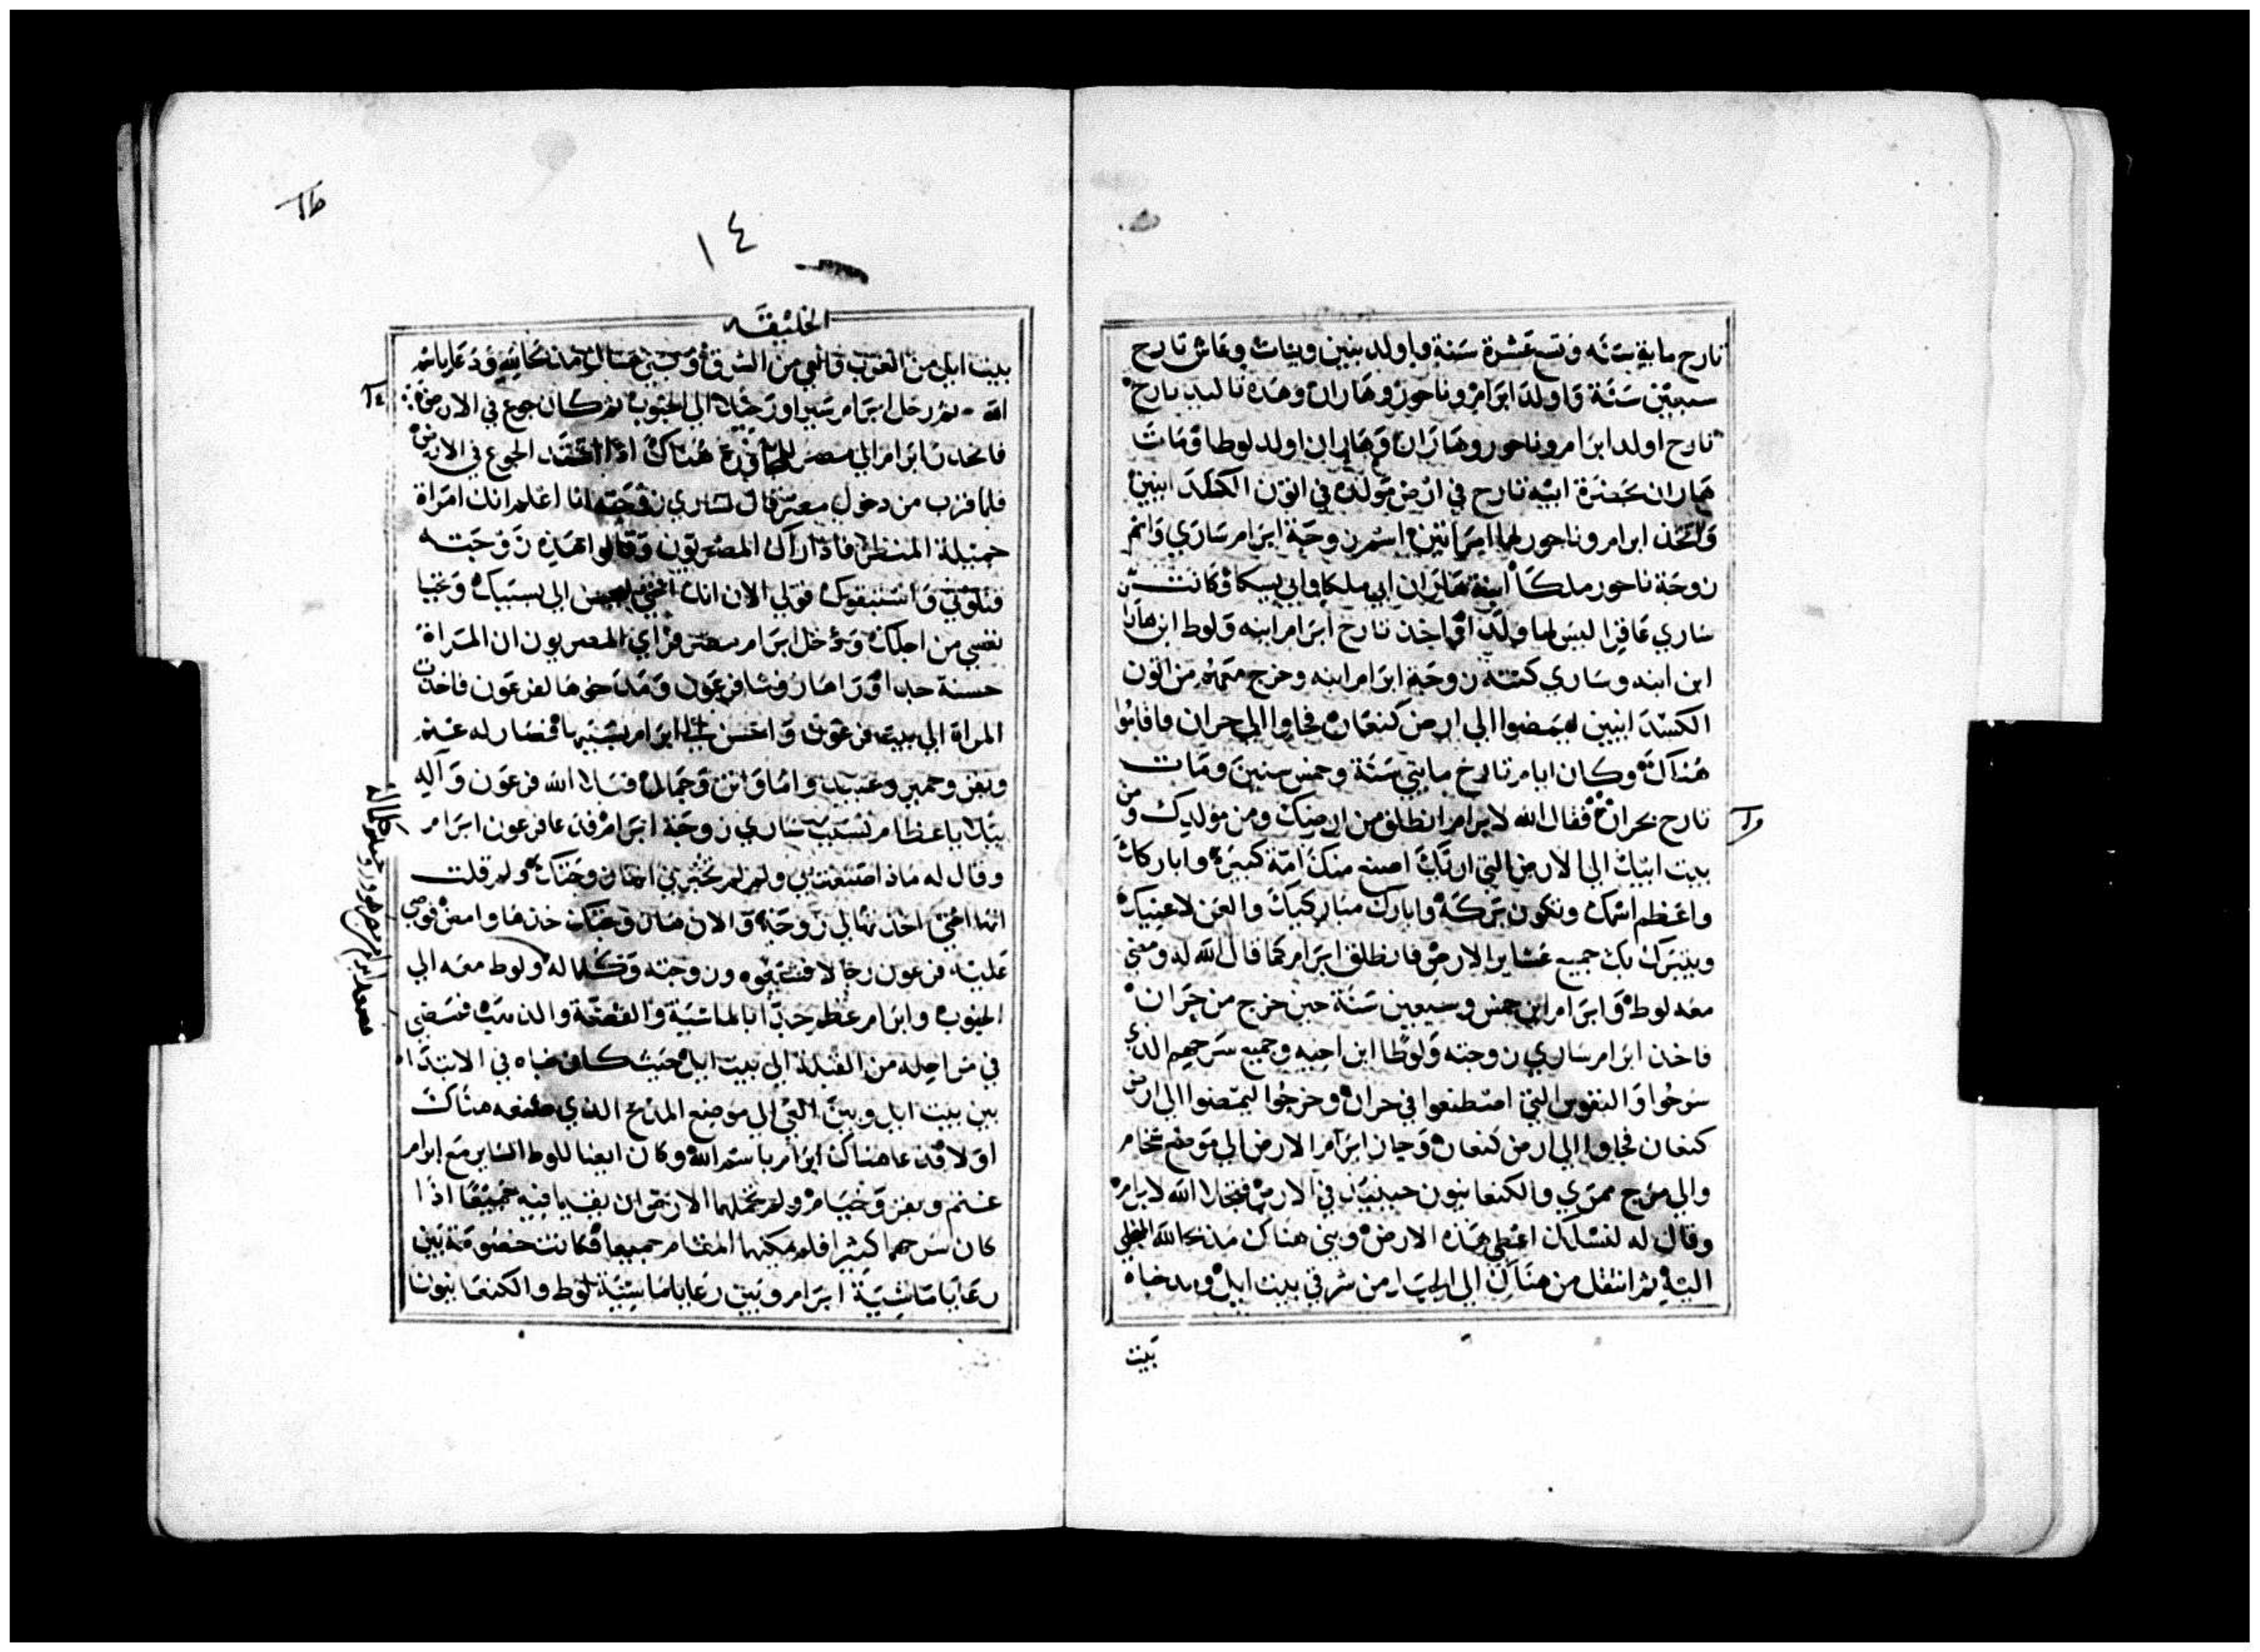 تارح ماية سَنَه وتسع عَشرة سَنة واولد بنين وبنات وعَاش تارح
سبعين سَنَة وَاولد ابرَام وناحور وهَاران وهَذه تاليد تارح
تارح اولد ابرَام وناحور وهَارَان وَهَاران اولد لوطا وَمَات
هَاران بحَضرة ابيه تارح في ارض مَولده في اتون الكلدَ انيين
وَاتخذ ابرام وناحور لهما امرَاتين اسم زوجَة ابرَام سَاري وَاسم
زوجَة ناحور ملكَا ابنة هَارَان ابي ملكا وابي يسكا وكانت
سَاري عَاقرا ليسَ لها ولد واخذ تارح ابرَام ابنه وَلوط ابن هاران
ابن ابنه وسَاري كنته زوجَة ابرَام ابنه وخرج معَهم من اتون
الكسدَ انيين ليمَضوا الي ارض كنعَان فجاوا الي حران فاقاموا
هُنَاكَ وكان ايام تارح مايتي سَنَة وخمس سنين ومَات
تارح بحران فقال الله لابرام انطلق من ارضك ومن مولدك ومن
بيت ابيك الي الارض التي اريَك اصنع منكَ امّة كبيرَة واباركك
واعَظم اسمك وتكون بَركَة وابارك مبَاركيك والعَن لاعنيك
ويتبَرك بك جميع عشاير الارض فانطلق ابرَام كمَا قال الله له ومضي
معَه لوط وَابرَام ابن خمس وسبعين سَنَة حين خرج من حَرَان
فاخذ ابرَام سَاري زوجته وَلوطا ابن اخيه وجميع سَرحهم الذي
سَرحُوا وَالنفوس التي اصطنعوا في حران وخرجُوا ليمَضوا الي ارض
كنعَان فجاوا الي ارض كنعان وَجاز ابرَام الارض الي مَوضع شخام
والي مرج ممري والكنعانيون حينيذ في الارض فتجلا الله لابرام
وقال له لنسلك اعطي هَذه الارض وبني هناك مَذبحا لله المتجلي
اليه ثم انتقل من هنَاك الي الجبَل من شرقي بيت ايل ومد خباه
بَيت
١٤
الخليقَه
بيت ايل من الغرب والعي من الشرق وَبني هنالك مذبحا لله وَدعَا باسم
الله ثم رحَل ابرَام سَيرا ورَحيلا الي الجنوب ثم كان جوع في الارض
فانحدَر ابرَام الي مصر هُناك اذا اشتد الجوع في الارض
فلما قرب من دخول مصر قال لسَاري زوجَته انا اعلم انك امرَاة
جميلة المنظر فاذا راك المصريون وَقالوا هَذه زوجَته
فقولي الان انك اختي ليحسن الي بسَببك وَتحيا
نفسي من اجلك وَدخل ابرَام مصر فرَاي المصريون ان المرَاة
حسنة جدا وَرَاها رُوسَا فرعَون وَمَدَحوهَا لفرعَون فاخذت
المراة الي بيت فرعَون وَاحسَن الي ابرَام بسَببها فصَار له غنم
وبقر وحمير وعَبيد وامَا واتن وَجمَال فبلا الله فرعَون وَآله
بلايا عظام بسَبب سَاري زوجَة ابرَام فدعَا فرعون ابرَام
وقال له مَاذا اصنعت بي ولم لم تخبرني انها زوجَتك ولم قلت
انها اختي اخذتها لي زَوجَة وَالان هَذه زوجَتك خذهَا وامض فوصي
عَليه فرعون رجَالا فشيعوه وزوجته وَكلما له ولوط معَه الي
الجنوب وابرَام عظم جدّا بالماشيَة وَالفضّة والذهب فمَضي
في مرَاحله من القبلة الي بيت ايل حيث كان خباه في الابتدَاء
بين بيت ايل وبين العي الي موضع المذبح الذي صنعَه هنَاك
اوَلا فدعا هناك ابرَام باسم الله وكان ايضا للوط السَاير مَع ابرام
غنم وبقر وَخيَام ولم تحملهما الارض ان يقيما فيه جميعًا اذا
كان سَرحهما كثيرا فلم يمكنهما المقام جميعا وكانت خصُومَة بَين
رعَايَا مَاشيَة ابرَام وَبَين رعَايا مَاشيَة لوط والكنعَانيون